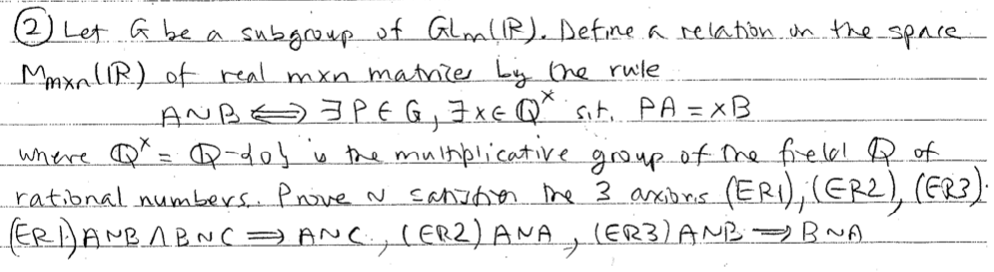 ② Let G be a subgroup of GLm(ℝ). Define a relation on the space
Mmxn(ℝ) of real mxn matrices by the rule
A~B ⟺ ∃P∈G, ∃x∈ℚˣ s.t. PA = xB
where ℚˣ = ℚ-{0} is the multiplicative group of the field ℚ of
rational numbers. Prove ~ satisfies the 3 axioms (ER1), (ER2), (ER3).
(ER1) A~B ∧ B~C ⟹ A~C, (ER2) A~A, (ER3) A~B ⟹ B~A